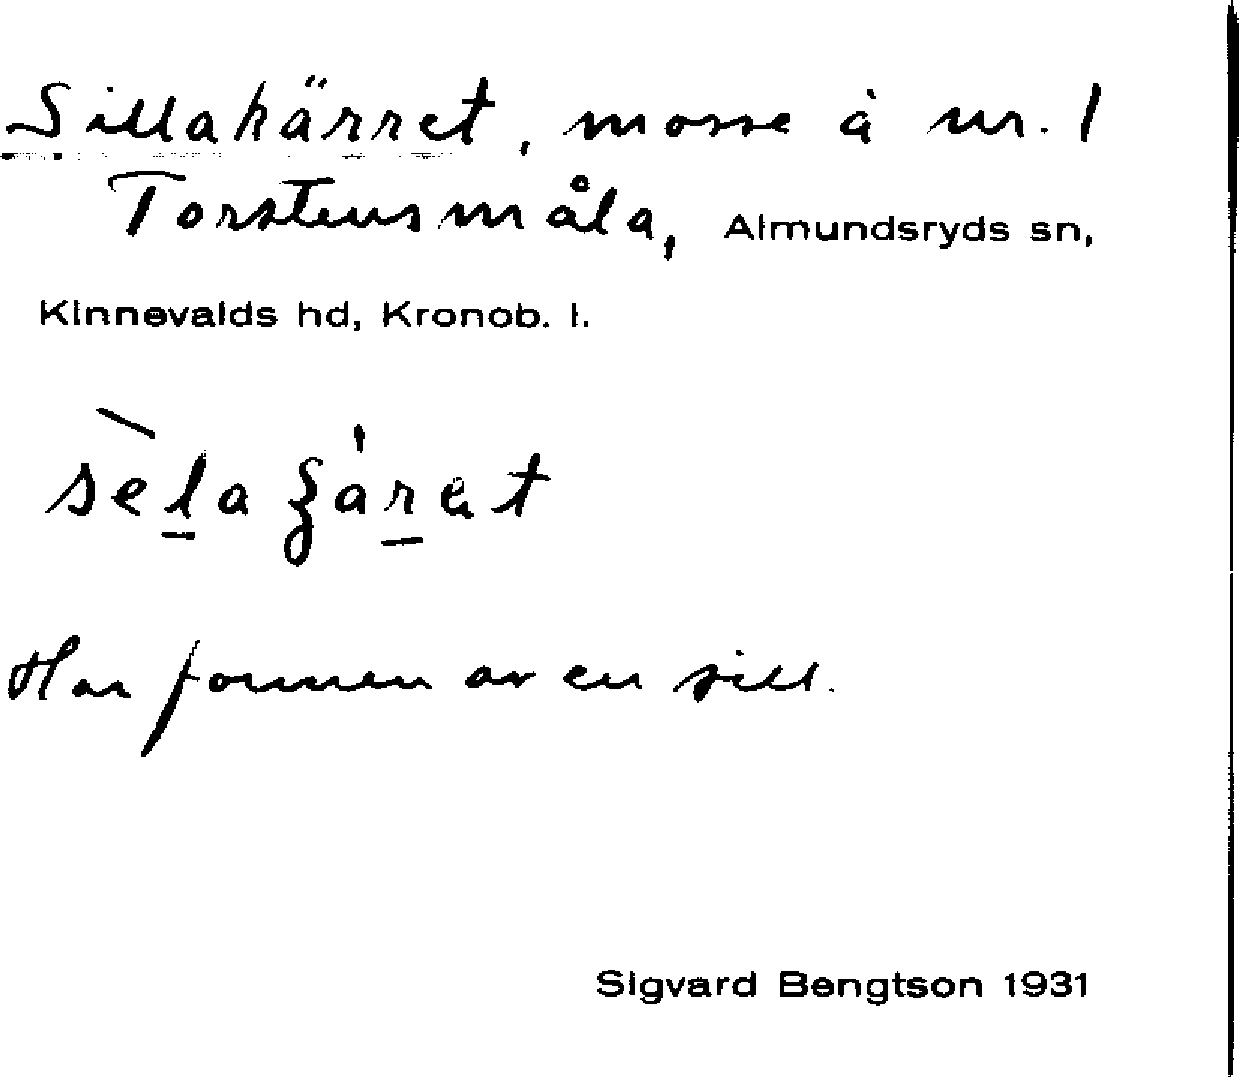 Sillakärret, mosse å nr. 1
Torstensmåla, Almundsryds sn,
Kinnevalds hd, Kronob. l.
Har formen av en sill.
Sigvard Bengtson 1931